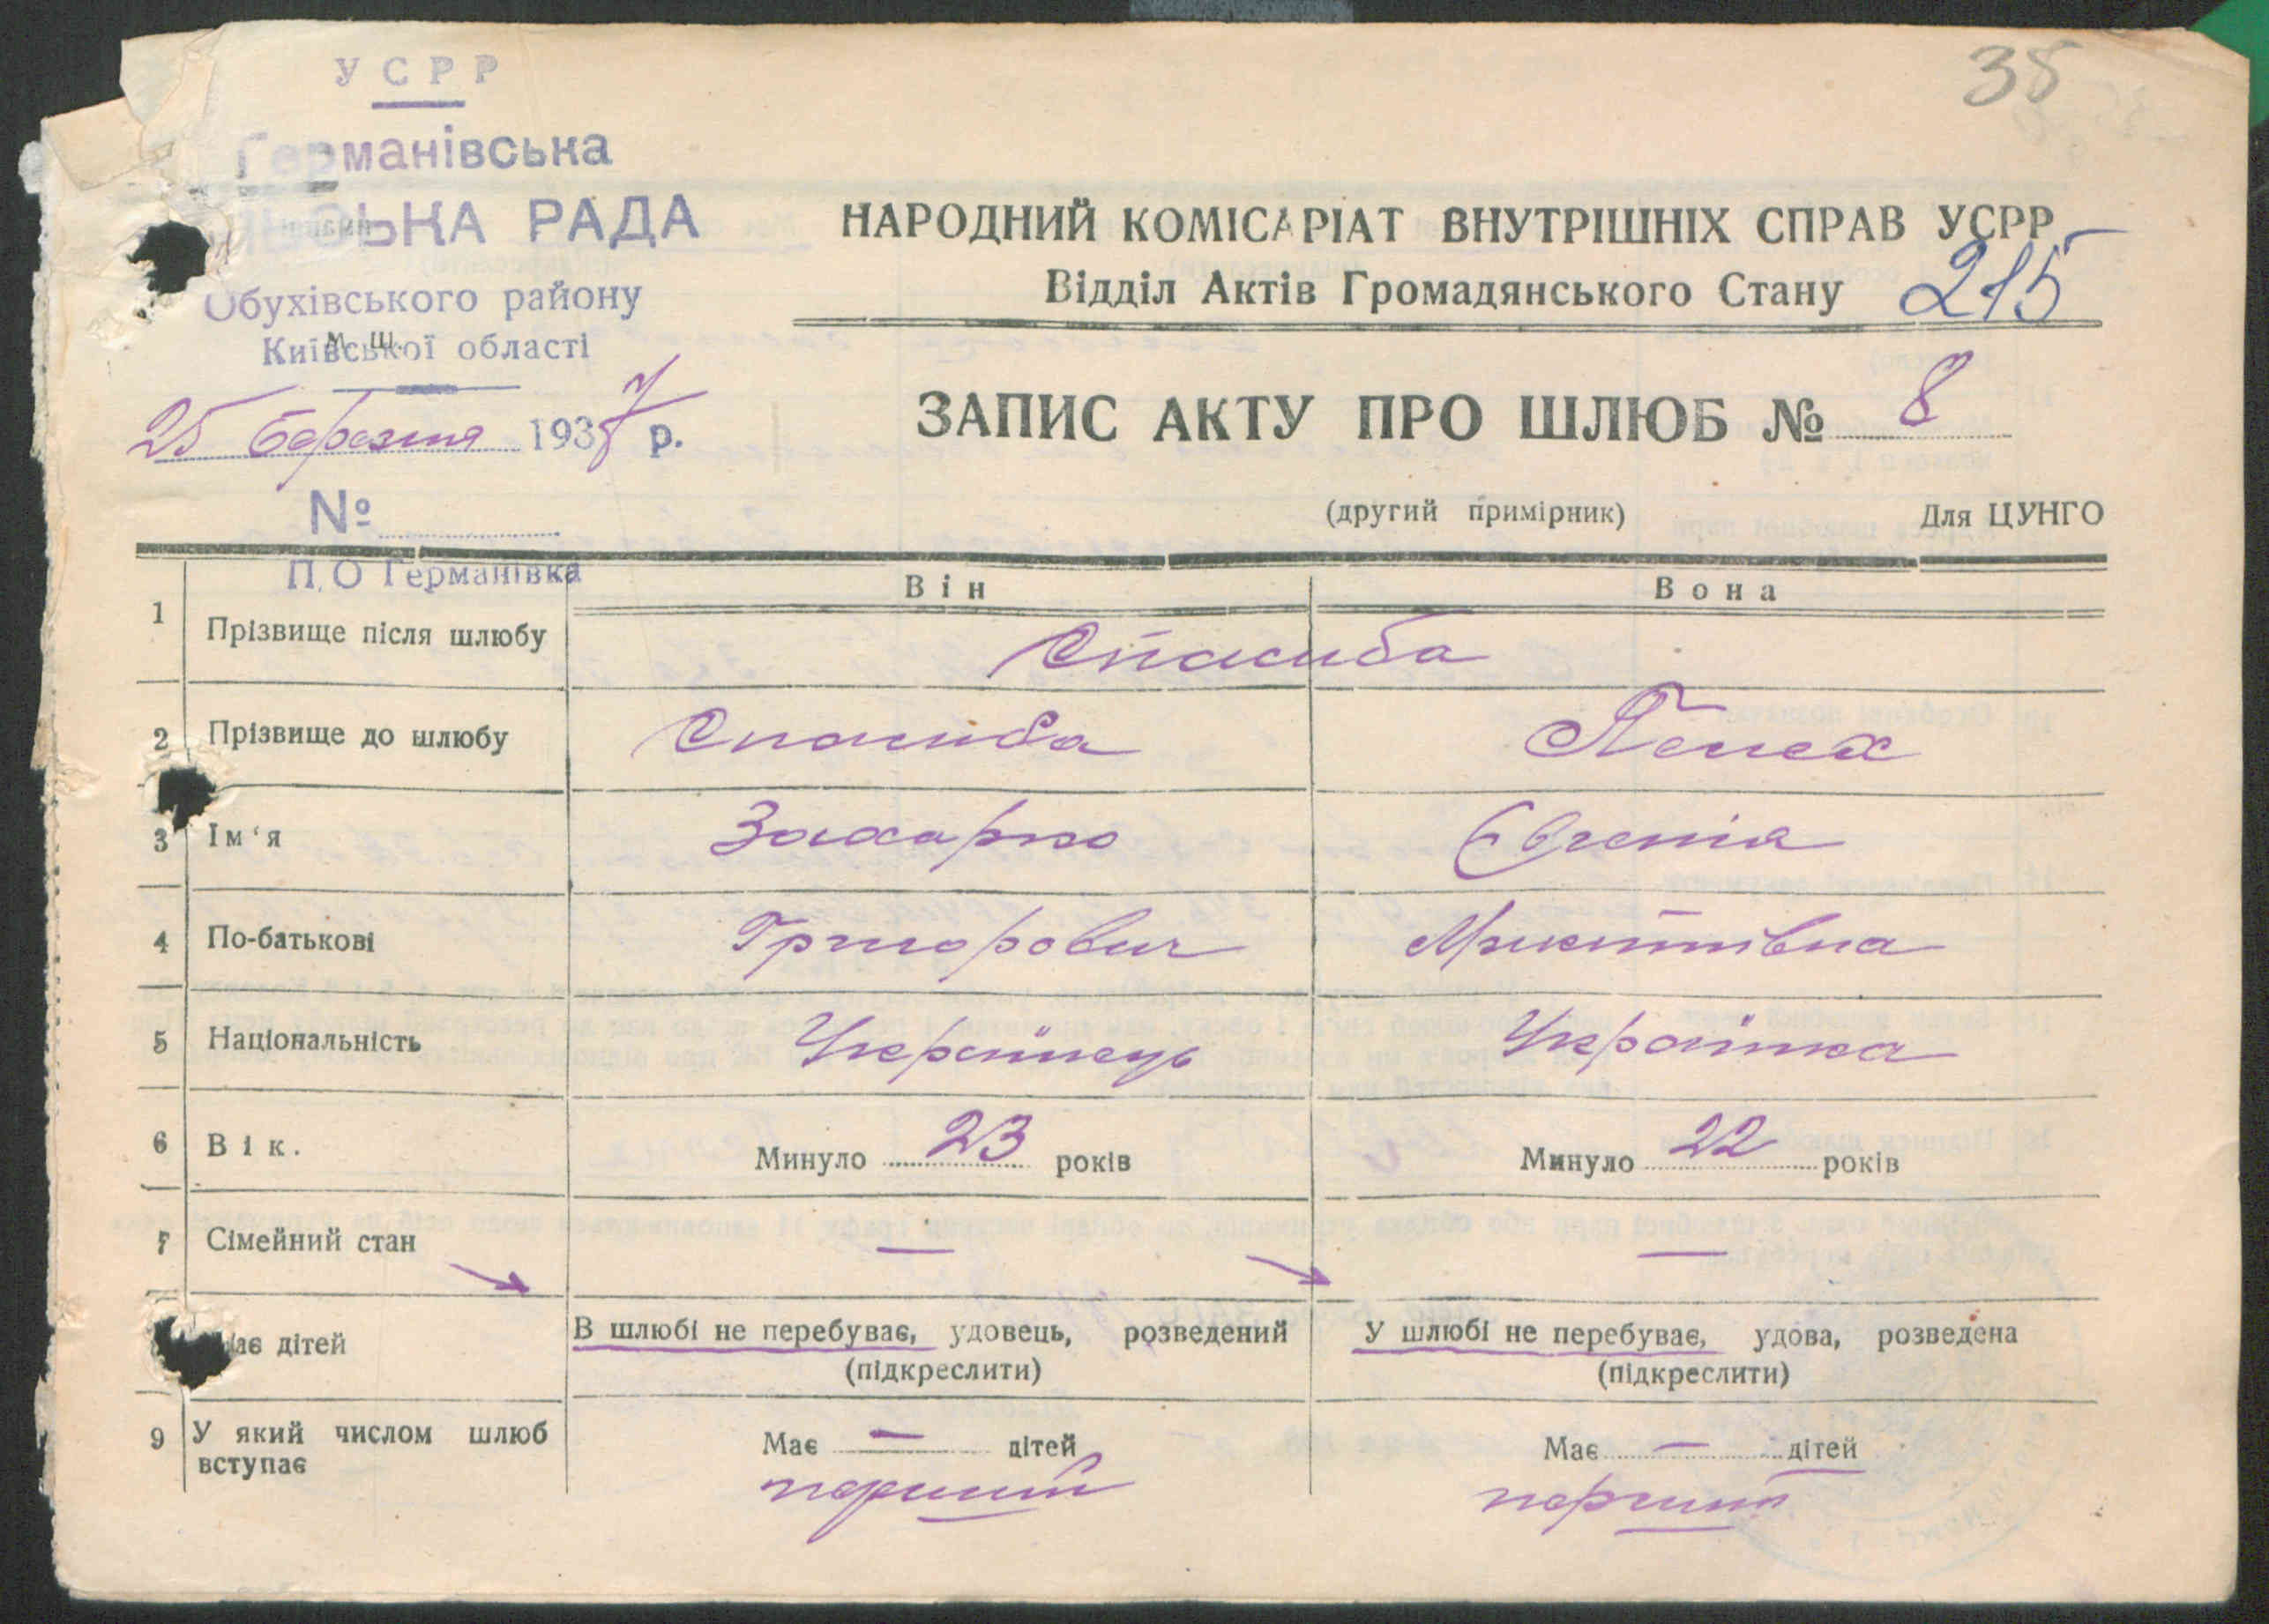 38
УСРР
Германівська
СЬКА РАДА
Обухівського району
Київської області
М. Ш.
25 березня 1937 р.
№
П.О Германівка
НАРОДНИЙ КОМІСАРІАТ ВНУТРІШНІХ СПРАВ УСРР
Відділ Актів Громадянського Стану 215
ЗАПИС АКТУ ПРО ШЛЮБ № 8
(другий примірник) Для ЦУНГО
Він Вона
1 Прізвище після шлюбу Спасиба
2 Прізвище до шлюбу Спасиба
3 Ім'я Захарко Євгенія
4 По-батькові Григорович Микитівна
5 Національність Українець Українка
6 Вік. Минуло 23 років Минуло 22 років
7 Сімейний стан — —
ає дітей В шлюбі не перебуває, удовець, розведений У шлюбі не перебуває, удова, розведена
(підкреслити) (підкреслити)
9 У який числом шлюб вступає Має — дітей Має — дітей
перший перший